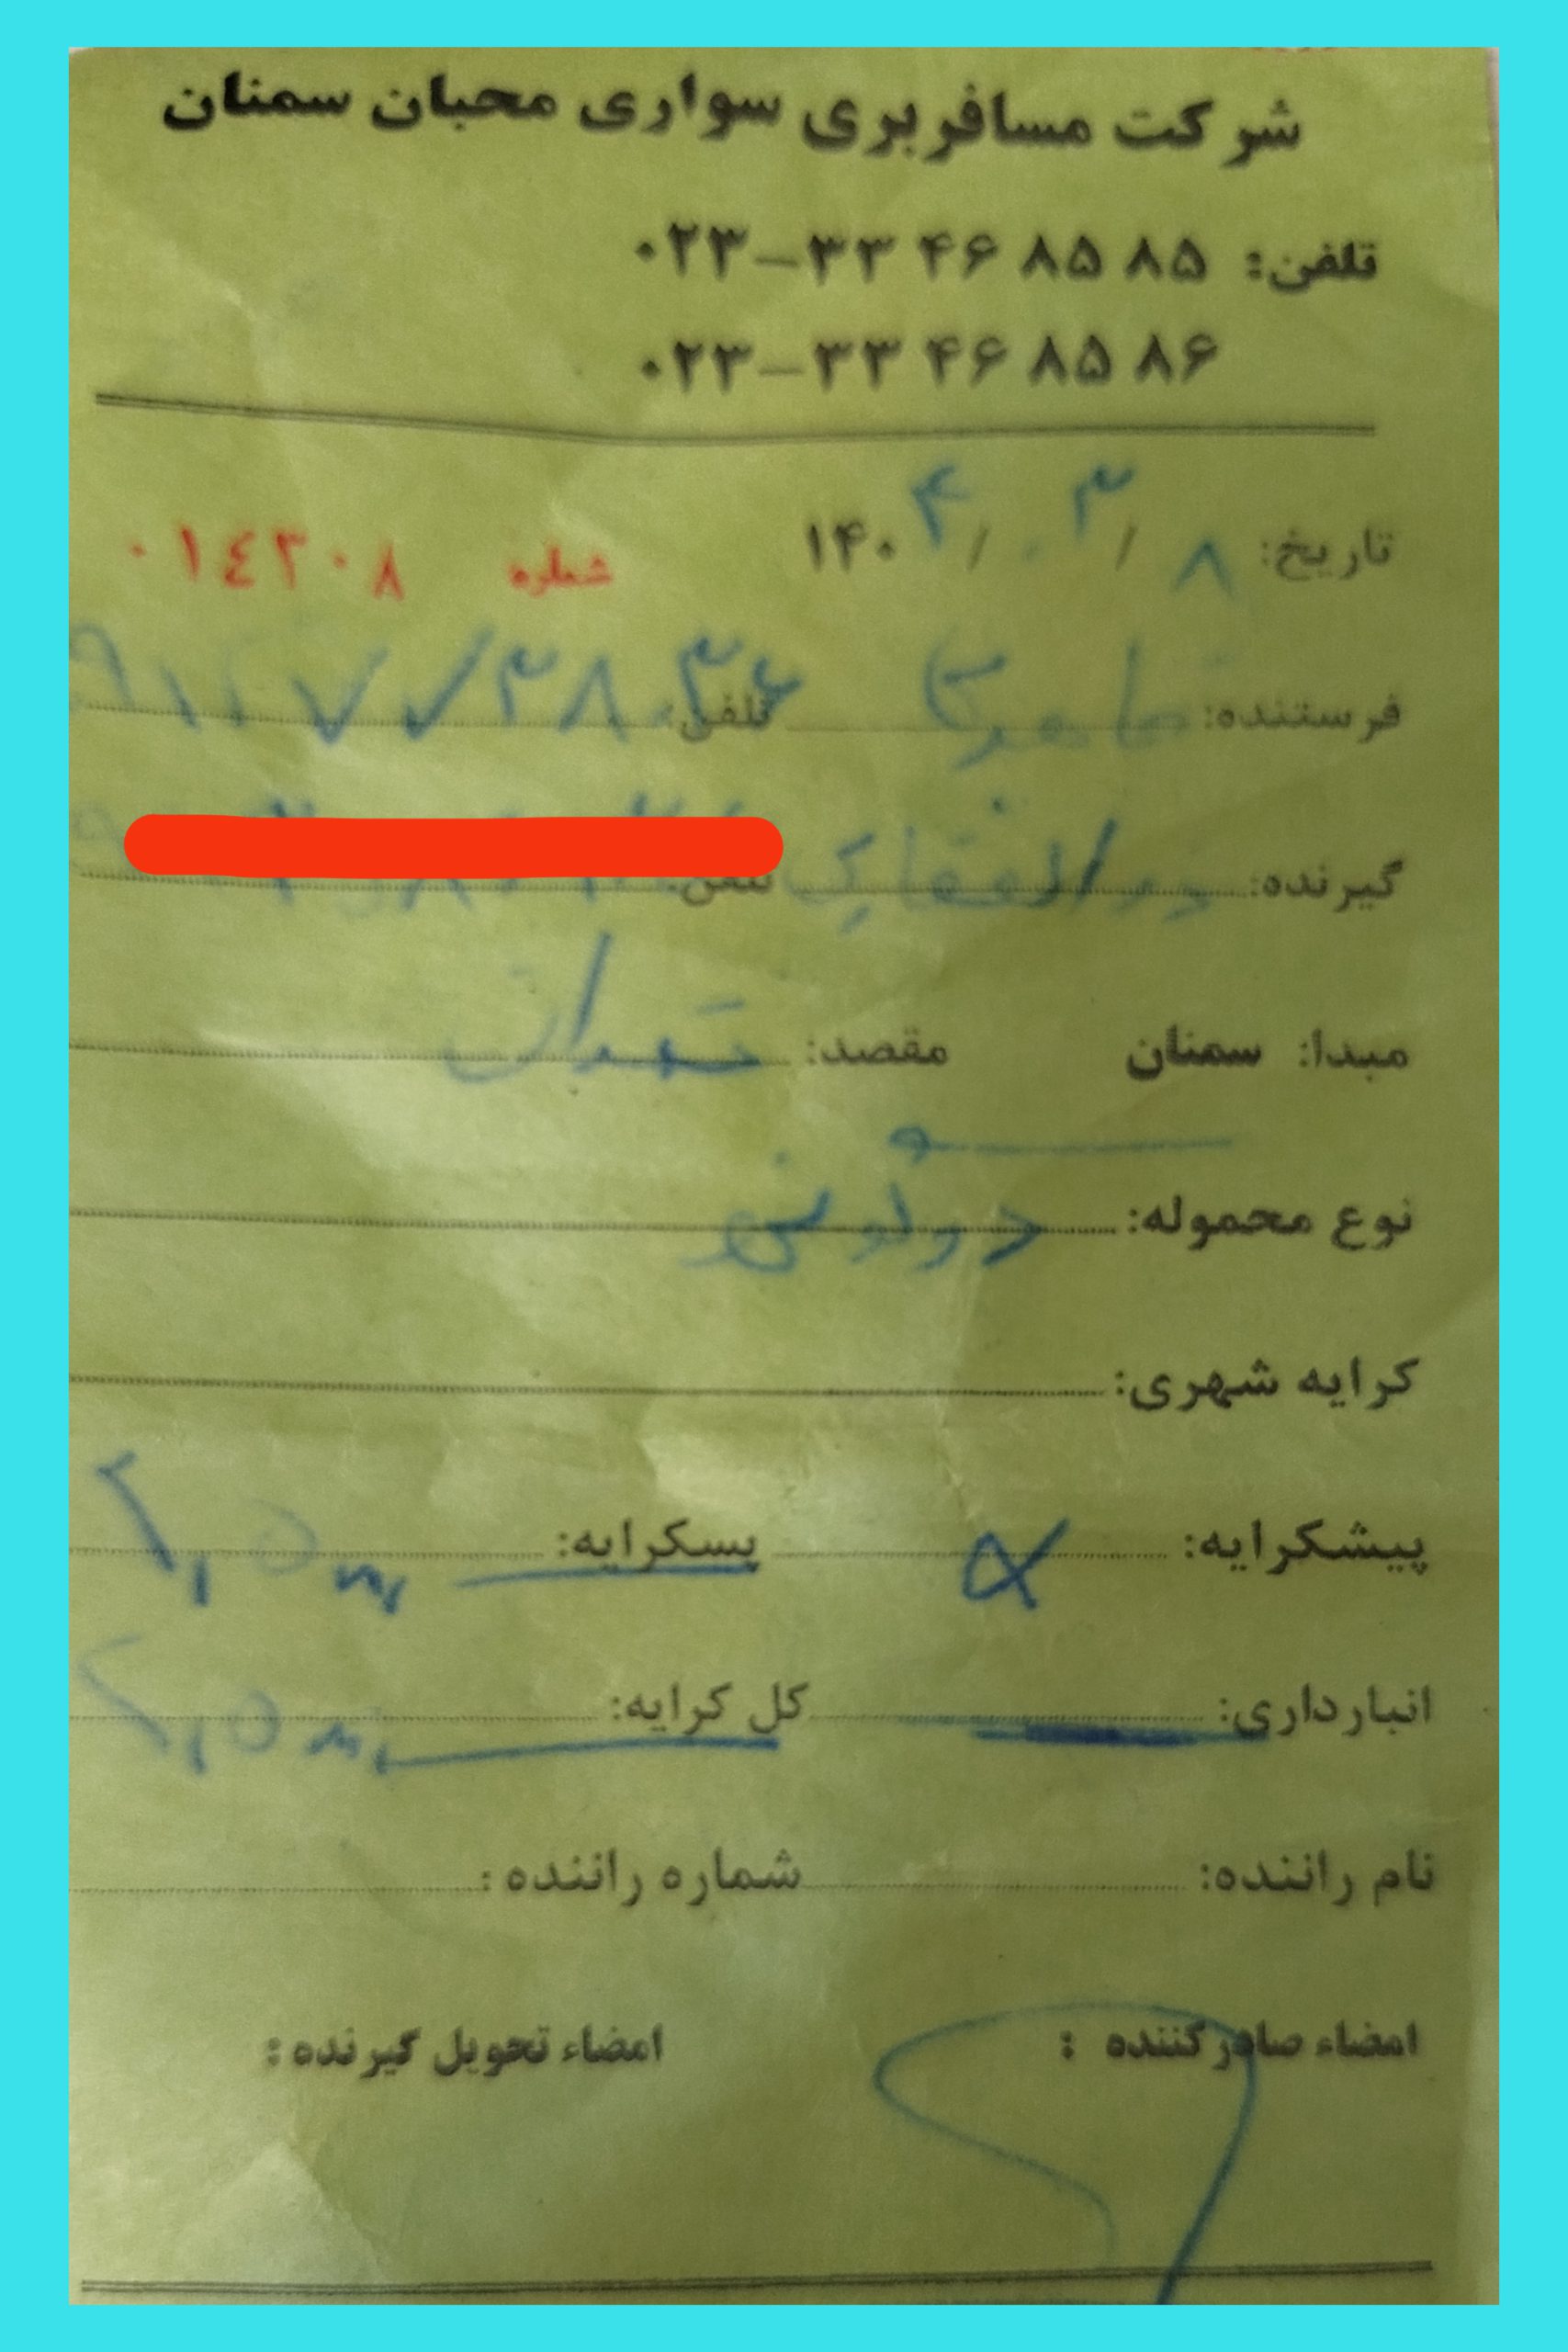 شرکت مسافربری سواری محبان سمنان
تلفن: ۰۲۳-۳۳ ۴۶ ۸۵ ۸۵
۰۲۳-۳۳ ۴۶ ۸۵ ۸۶
تاریخ: ۸ / ۰۳ / ۱۴۰۴ شماره ۰۱٤۳۰۸
فرستنده: تلفن:
گیرنده: ذوالفقاری تلفن:
مبدا: سمنان مقصد: تهران
نوع محموله:
کرایه شهری:
پیشکرایه: پسکرایه:
انبارداری: کل کرایه:
نام راننده: شماره راننده :
امضاء صادر کننده : امضاء تحویل گیرنده :